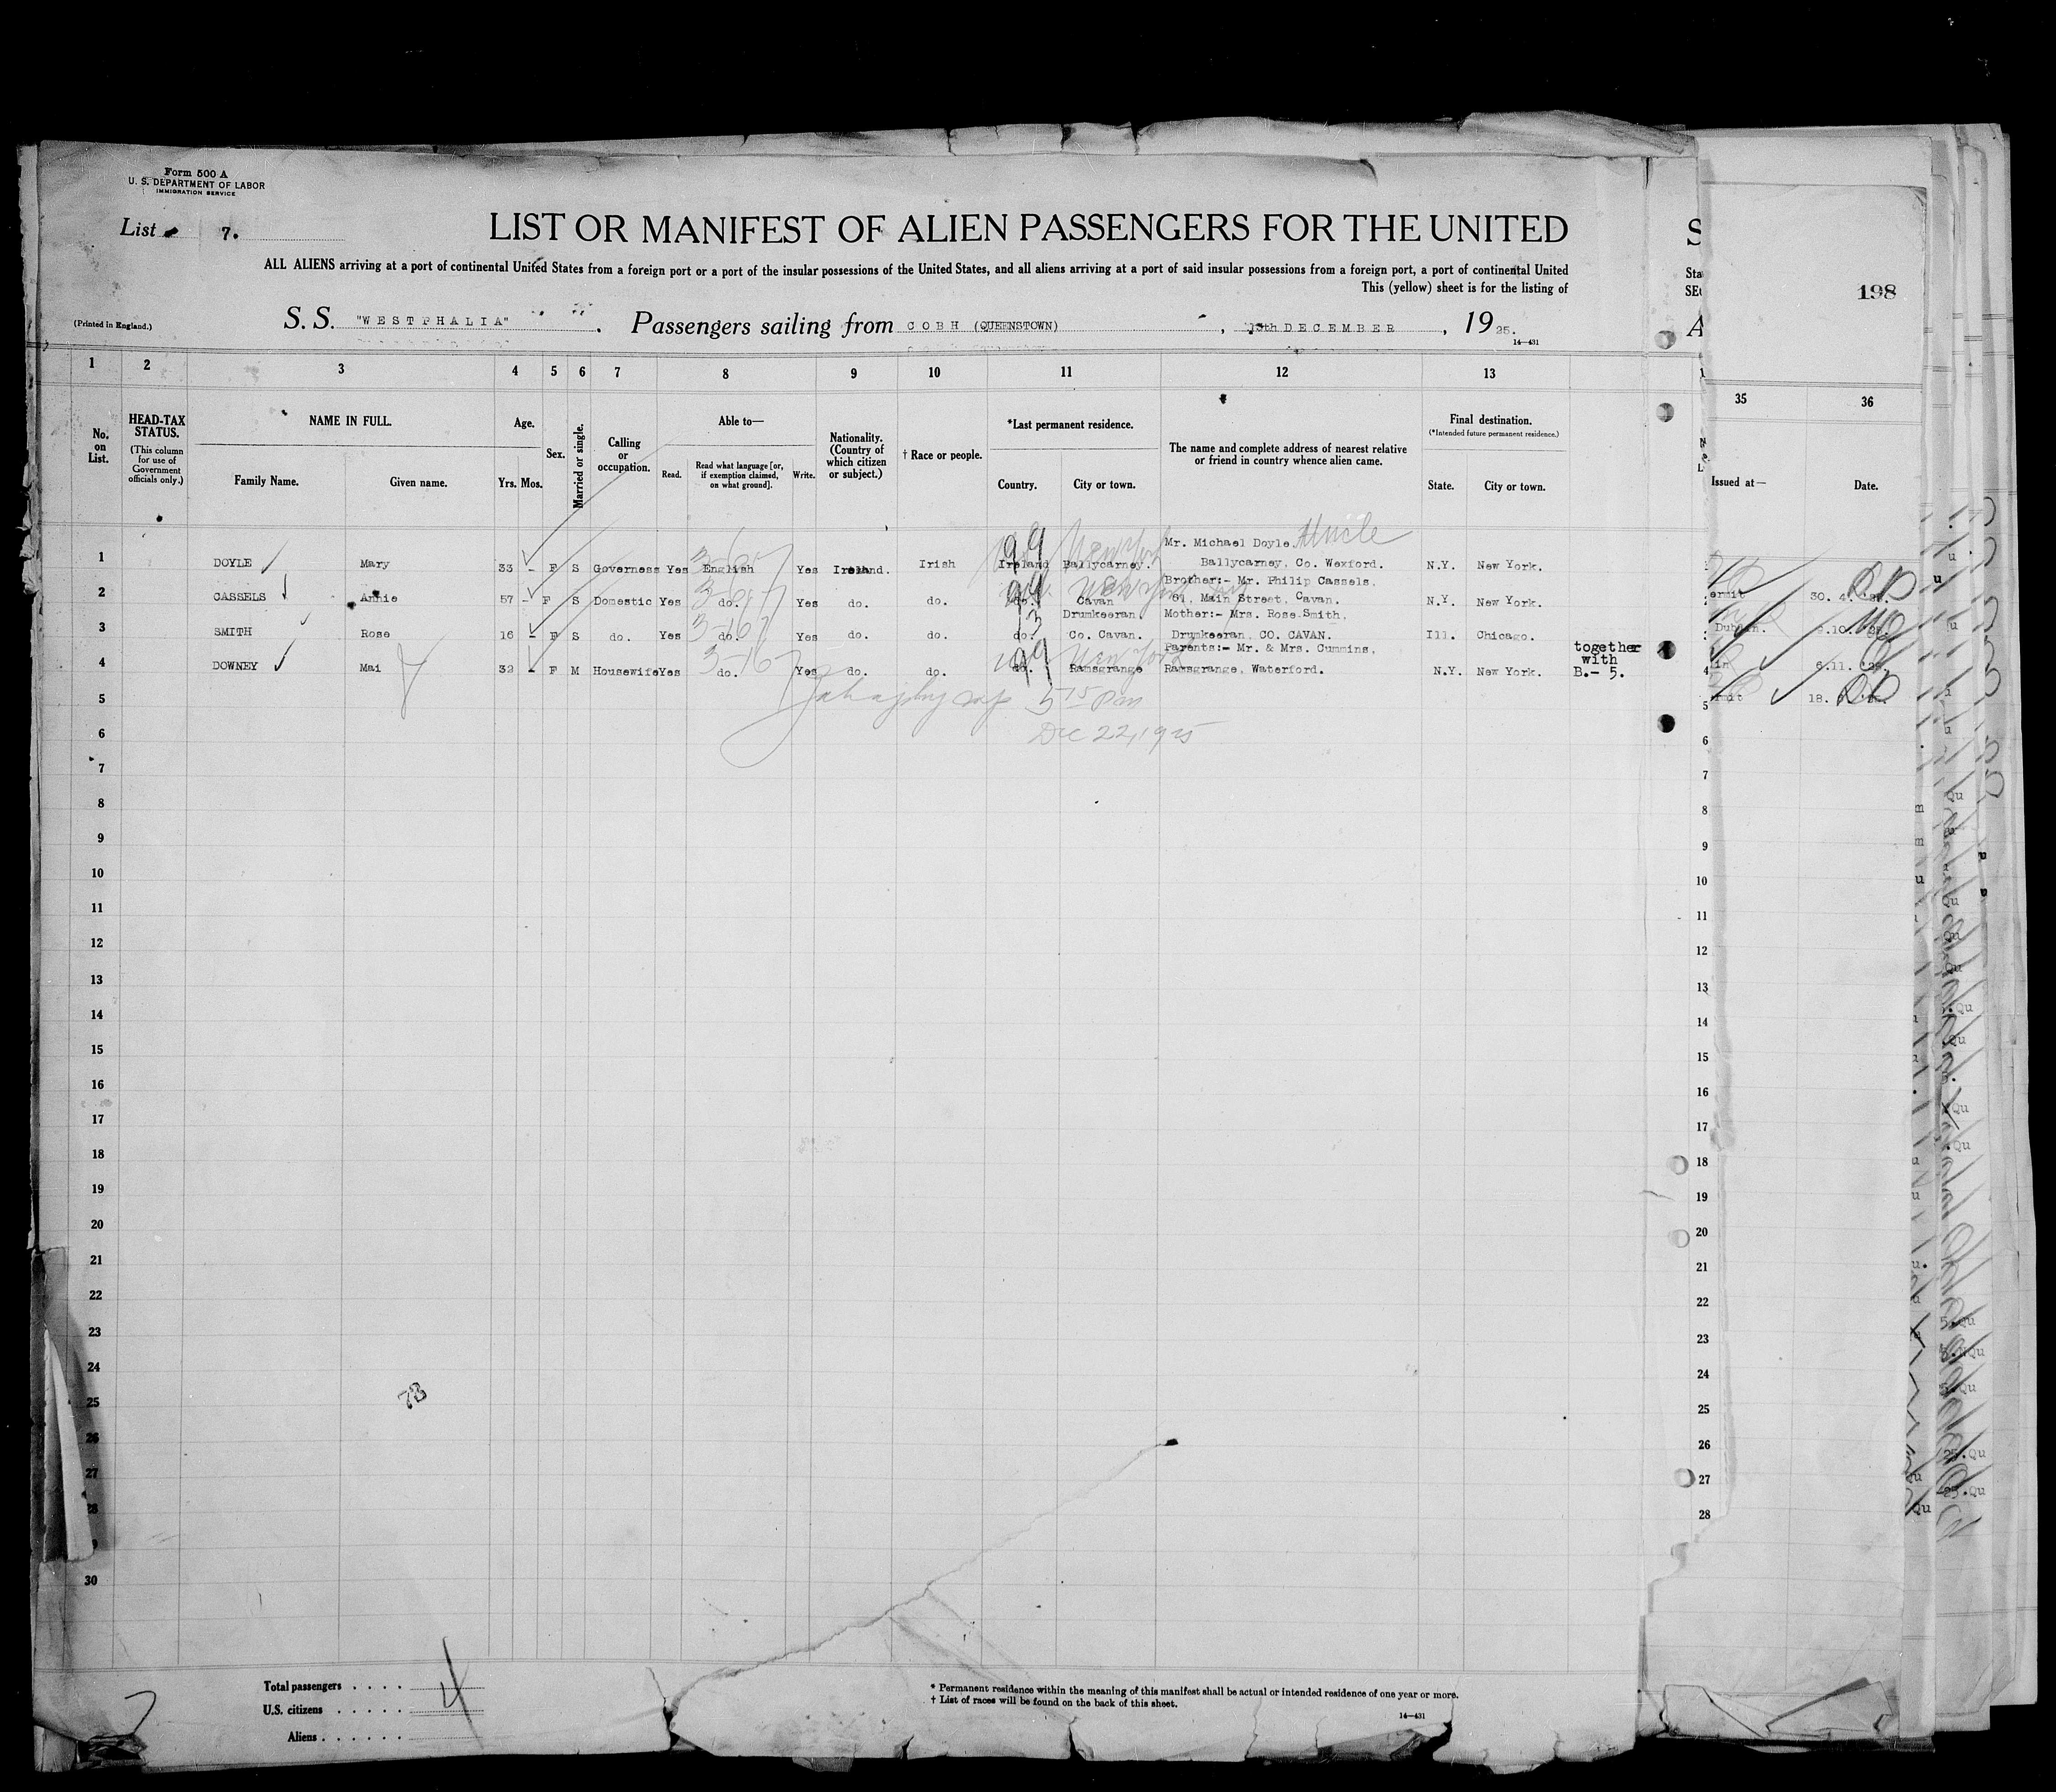 Form 500 A
U. S. DEPARTMENT OF LABOR
IMMIGRATION SERVICE
List 7.
LIST OR MANIFEST OF ALIEN PASSENGERS FOR THE UNITED
ALL ALIENS arriving at a port of continental United States from a foreign port or a port of the insular possessions of the United States, and all aliens arriving at a port of said insular possessions from a foreign port, a port of continental United
This (yellow) sheet is for the listing of
198
(Printed in England.)
S. S. "WESTPHALIA" . Passengers sailing from COBH (QUEENSTOWN) , DECEMBER , 19 25.
14—431
1 2 3 4 5 6 7 8 9 10 11 12 13 35 36
No. on List.
HEAD-TAX STATUS.
(This column for use of Government officials only.)
NAME IN FULL.
Family Name. Given name.
Age.
Yrs. Mos.
Sex.
Married or single.
Calling or occupation.
Able to—
Read. Read what language [or, if exemption claimed, on what ground]. Write.
Nationality. (Country of which citizen or subject.)
† Race or people.
*Last permanent residence.
Country. City or town.
The name and complete address of nearest relative or friend in country whence alien came.
Final destination.
(*Intended future permanent residence.)
State. City or town.
Issued at— Date.
Mr. Michael Doyle, Uncle
1 DOYLE Mary 33 - F S Governess Yes English Yes Ireland. Irish Ireland Ballycarney. Ballycarney, Co. Wexford. N.Y. New York.
99 New York
Brother:- Mr. Philip Cassels,
2 CASSELS Annie 57 - F S Domestic Yes do. Yes do. do. do. Cavan 61, Main Street, Cavan. N.Y. New York. 30. 4.
99 New York
Drumkeeran Mother:- Mrs. Rose Smith,
3 SMITH Rose 16 - F S do. Yes do. Yes do. do. do. Co. Cavan. Drumkeeran, CO. CAVAN. Ill. Chicago. Dublin.
13
Parents:- Mr. & Mrs. Cummins,
4 DOWNEY Mai 32 - F M Housewife Yes do. Yes do. do. do. Ramsgrange Ramsgrange, Waterford. N.Y. New York. 6.11.
99 New York
together
with
B.- 5.
5 15 pm
Dec 22, 1925
5
6
7
8
9
10
11
12
13
14
15
16
17
18
19
20
21
22
23
24
25
26
27
28
30
78
Total passengers . . . . 4
U.S. citizens . . . . .
Aliens . . . . . .
* Permanent residence within the meaning of this manifest shall be actual or intended residence of one year or more.
† List of races will be found on the back of this sheet.
14—431